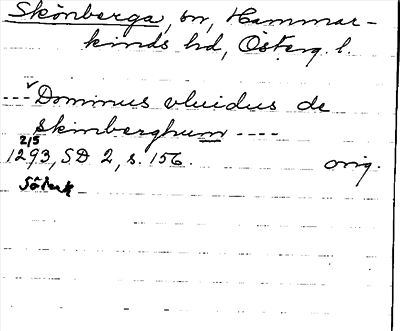 Skönberga, sn, Hammar-
kinds hd, Österg. l.
--- Dominus vluidus de
skinberghum ----
2/5
1293, SD 2, s. 156. orig.